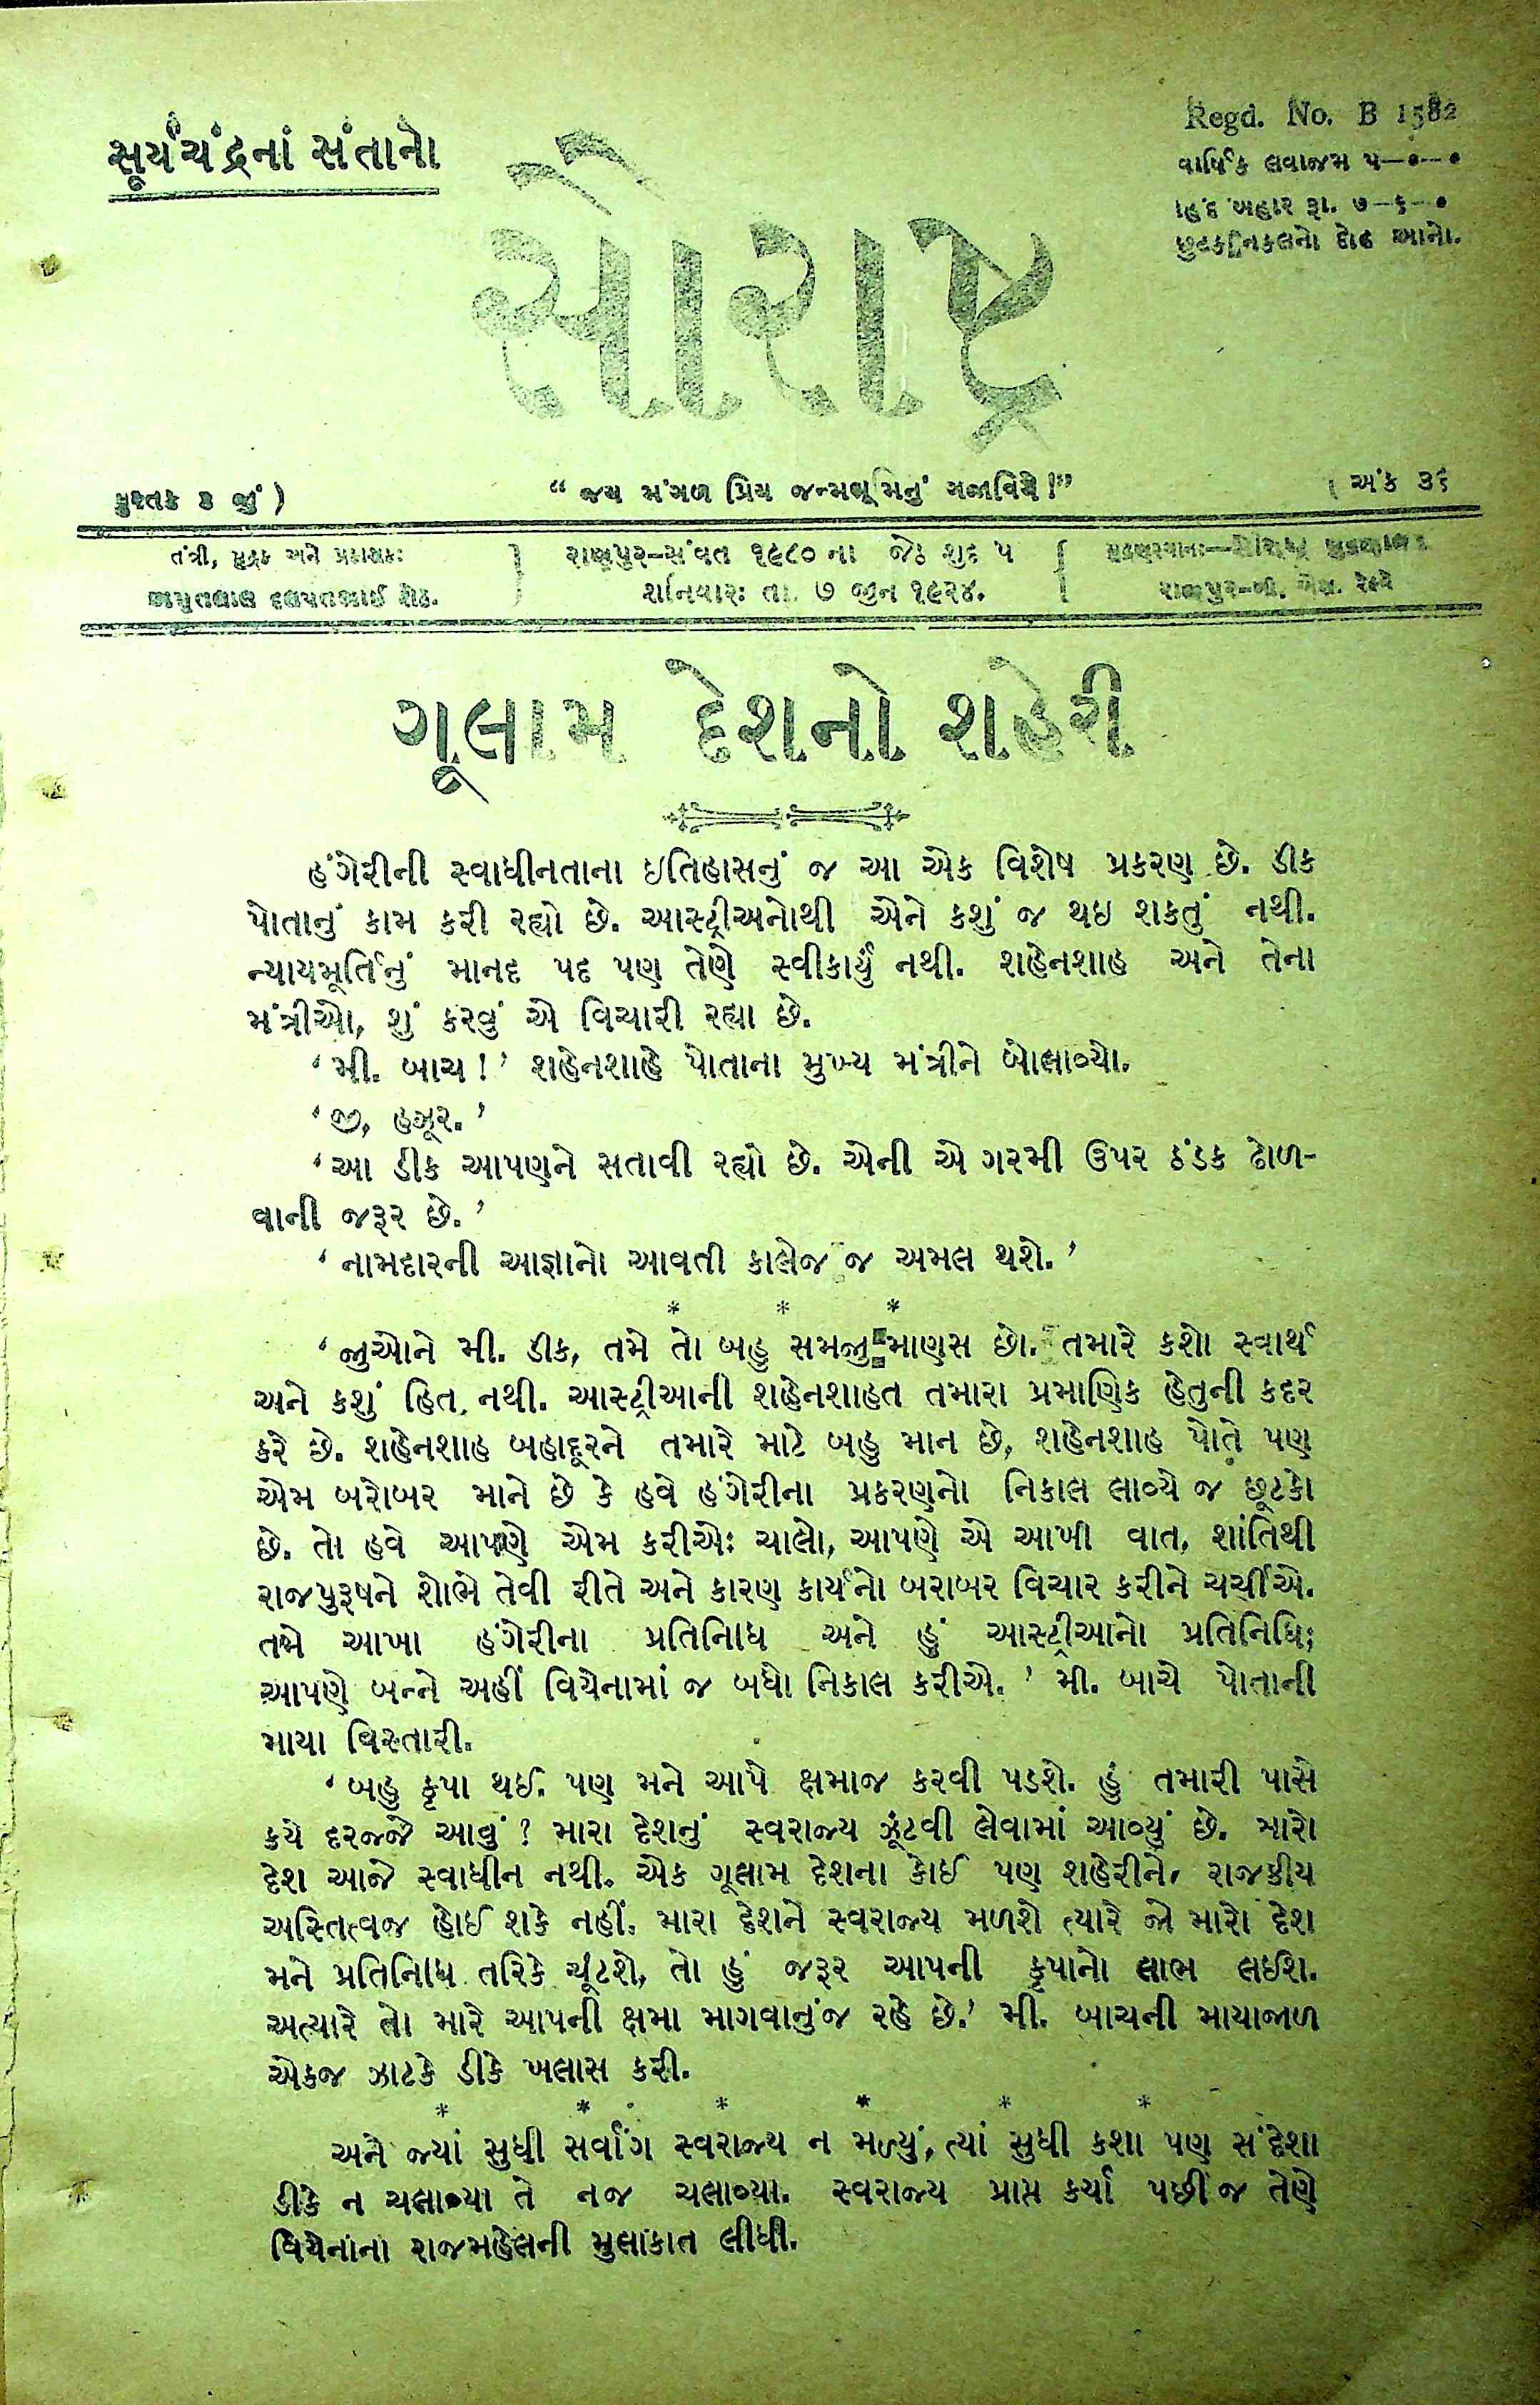 સૂર્યચંદ્રનાં સંતાનો
Regd. No. B 1582
વાર્ષિક લવાજમ ૫—૦—૦
હિંદ બહાર રૂા. ૭—૬—૦
છુટક નકલનો દોઢ આનો.
સૌરાષ્ટ્ર
પુસ્તક ૩ જું )
“ જય મંગળ પ્રિય જન્મભૂમિનું ગજાવિયે!”
( અંક ૩૬
તંત્રી, મુદ્રક અને પ્રકાશક:
અમૃતલાલ દલપતભાઈ શેઠ.
રાણપુર–સંવત ૧૯૮૦ ના જેઠ શુદ ૫
શનિવાર: તા. ૭ જુન ૧૯૨૪.
મુદ્રણસ્થાન:—સૌરાષ્ટ્ર મુદ્રણાલય
રાણપુર–બી. એસ. રેલ્વે
ગૂલામ દેશનો શહેરી
હંગેરીની સ્વાધીનતાના ઇતિહાસનું જ આ એક વિશેષ પ્રકરણ છે. ડીક
પોતાનું કામ કરી રહ્યો છે. આસ્ટ્રીઅનોથી એને કશું જ થઇ શકતું નથી.
ન્યાયમૂર્તિનું માનદ પદ પણ તેણે સ્વીકાર્યું નથી. શહેનશાહ અને તેના
મંત્રીઓ, શું કરવું એ વિચારી રહ્યા છે.
‘ મી. બાચ ! ’ શહેનશાહે પોતાના મુખ્ય મંત્રીને બોલાવ્યો.
‘ જી, હઝૂર. ’
‘ આ ડીક આપણને સતાવી રહ્યો છે. એની એ ગરમી ઉપર ઠંડક ઢોળ-
વાની જરૂર છે. ’
‘ નામદારની આજ્ઞાનો આવતી કાલેજ જ અમલ થશે. ’
* * *
‘ જુઓને મી. ડીક, તમે તો બહુ સમજુ માણસ છો. તમારે કશો સ્વાર્થ
અને કશું હિત નથી. આસ્ટ્રીઆની શહેનશાહત તમારા પ્રમાણિક હેતુની કદર
કરે છે. શહેનશાહ બહાદૂરને તમારે માટે બહુ માન છે, શહેનશાહ પોતે પણ
એમ બરોબર માને છે કે હવે હંગેરીના પ્રકરણનો નિકાલ લાવ્યે જ છૂટકો
છે. તો હવે આપણે એમ કરીએ: ચાલો, આપણે એ આખી વાત, શાંતિથી
રાજપુરૂષને શોભે તેવી રીતે અને કારણ કાર્યનો બરાબર વિચાર કરીને ચર્ચીએ.
તમે આખા હંગેરીના પ્રતિનિધિ અને હું આસ્ટ્રીઆનો પ્રતિનિધિ;
આપણે બન્ને અહીં વિયેનામાં જ બધો નિકાલ કરીએ. ’ મી. બાચે પોતાની
માયા વિસ્તારી.
‘ બહુ કૃપા થઈ. પણ મને આપે ક્ષમાજ કરવી પડશે. હું તમારી પાસે
કયે દરજ્જે આવું ? મારા દેશનું સ્વરાજ્ય ઝૂંટવી લેવામાં આવ્યું છે. મારો
દેશ આજે સ્વાધીન નથી. એક ગૂલામ દેશના કોઈ પણ શહેરીને, રાજકીય
અસ્તિત્વજ હોઈ શકે નહીં. મારા દેશને સ્વરાજ્ય મળશે ત્યારે જો મારો દેશ
મને પ્રતિનિધિ તરિકે ચૂંટશે, તો હું જરૂર આપની કૃપાનો લાભ લઇશ.
અત્યારે તો મારે આપની ક્ષમા માગવાનુંજ રહે છે.’ મી. બાચની માયાજાળ
એકજ ઝાટકે ડીકે ખલાસ કરી.
* * * * * *
અને જ્યાં સુધી સર્વાંગ સ્વરાજ્ય ન મળ્યું, ત્યાં સુધી કશા પણ સંદેશા
ડીકે ન ચલાવ્યા તે નજ ચલાવ્યા. સ્વરાજ્ય પ્રાપ્ત કર્યા પછીંજ તેણે
વિયેનાના રાજમહેલની મુલાકાત લીધી.